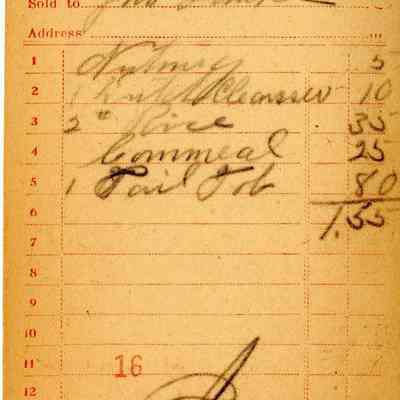 Sold to
Address
1 Nutmeg 5
2 1 Dutch Cleanser 10
3 2" Rice 35
4 Cornmeal 25
5 1 Pail Tob 80
6 1.55
7
8
9
10
11 16
12